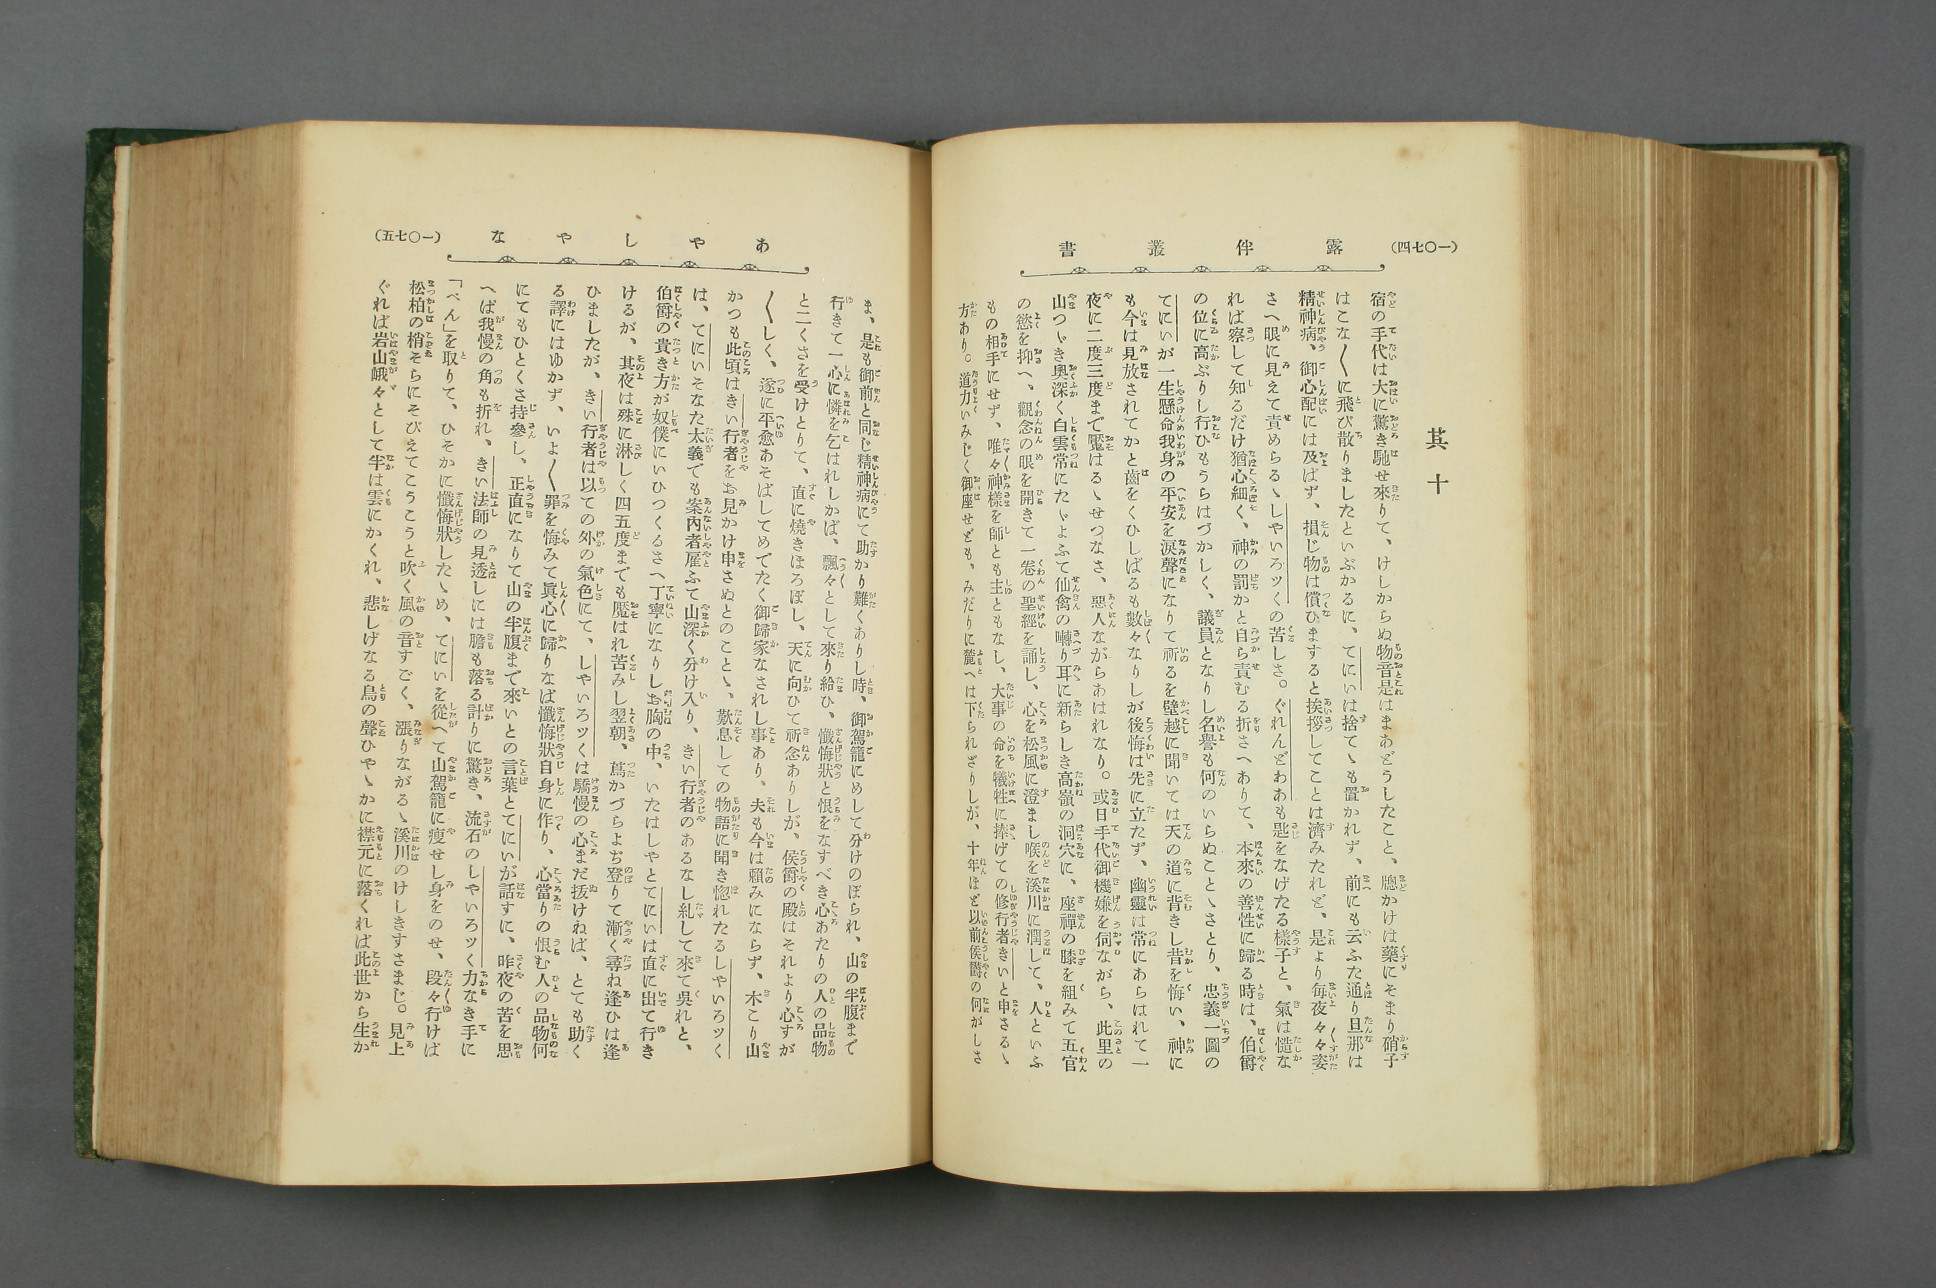 (一〇七四)
露伴叢書
其十
宿の手代は大に驚き馳せ來りて、けしからぬ物音是はまあどうしたこと、聰かけは藥にそまり硝子
はこな〲に飛び散りましたといぶかるに、てにいは捨てゝも置かれず、前にも云ふた通り旦那は
精神病、御心配には及ばず、損じ物は償ひまするると挨拶してことは濟みたれど、是より毎夜々々姿
さへ眼に見えて責めらるゝしやいろツくの苦しさ。ぐれんどわあも匙をなげたる樣子と、氣は慥な
れば察して知るだけ猶心細く、神の罰かと自ら責む折さへありて、本來の善性に歸る時は、伯爵
の位に高ぶりし行ひもうらはづかしく、議員となりし名譽も何のいらぬことゝさとり、忠義一圖の
てにいが一生懸命我身の平安を淚聲になりて祈るを壁越に聞いては天の道に背きし昔を悔い、神に
も今は見放されてかと齒をくひしばるも數々なりしが後悔は先に立たず、幽靈は常にあらはれて一
夜に二度三度まで魘はるゝせつなさ、惡人ながらあはれなり。或日手代御機嫌を伺ながら、此里の
山つゞき奧深く白雲常にたゞよふて仙禽の囀り耳に新らしき高嶺の洞穴に、座禪の膝を組みて五官
の慾を抑へ、觀念の眼を開きて一卷の聖經を誦し、心を松風に澄まし喉を溪川に潤して、人といふ
もの相手にせず、唯々神樣を師とも主ともなし、大事の命を犧牲に捧げての修行者きいと申さるゝ
方あり。道力いみじく御座せども、みだりに麓へは下られざりしが、十年ほど以前侯爵の何がしさ
(一〇七五)
あやしやな
ま、是も御前と同じ精神病にて助かり難くありし時、御駕籠にめして分けのぼられ、山の半腹まで
行きて一心に憐を乞はれしかば、飄々として來り給ひ、懺悔狀と恨をなすべき心あたりの人の品物
と二くさを受けとりて、直に燒きほろぼし、天に向ひて祈念ありしが、侯爵の殿はそれより心すが
〱しく、遂に平愈あそばしてめでたく御歸家なされし事あり。夫も今は賴みにならず、木こり山
かつも此頃はきい行者をお見かけ申さぬとのことゝ、歎息しての物語に聞き惚れたるしやいろツく
は、てにいそなた太義でも案內者雇ふて山深く分け入り、きい行者のあるなし糺して來て吳れと、
伯爵の貴き方が奴僕にいひつくるさへ丁寧になりしお胸の中、いたはしやとてにいは直に出て行き
けるが、其夜は殊に淋しく四五度までも魘はれ苦みし翌朝、蔦かづらよぢ登りて漸く尋ね逢ひは逢
ひましたが、きい行者は以ての外の氣色にて、しやいろツくは驕慢の心まだ拔けねば、とても助く
る譯にはゆかず、いよ〱罪を悔みて眞心に歸りなば懺悔狀自身に作り、心當りの恨む人の品物何
にてもひとくさ持參し、正直になりて山の半腹まで來いとの言葉とてにいが話すに、昨夜の苦を思
へば我慢の角も折れ、きい法師の見透しには膽も落る計りに驚き、流石のしやいろツく力なき手に
「ぺん」を取りて、ひそかに懺悔狀したゝめ、てにいを從へて山駕籠に瘦せし身をのせ、段々行けば
松柏の梢そらにそびえてこうこうと吹く風の音すごく、漲りながるゝ溪川のけしきすさまじ。見上
ぐれば岩山峨々として半は雲にかくれ、悲しげなる鳥の聲ひやゝかに襟元に落くれば此世から生か